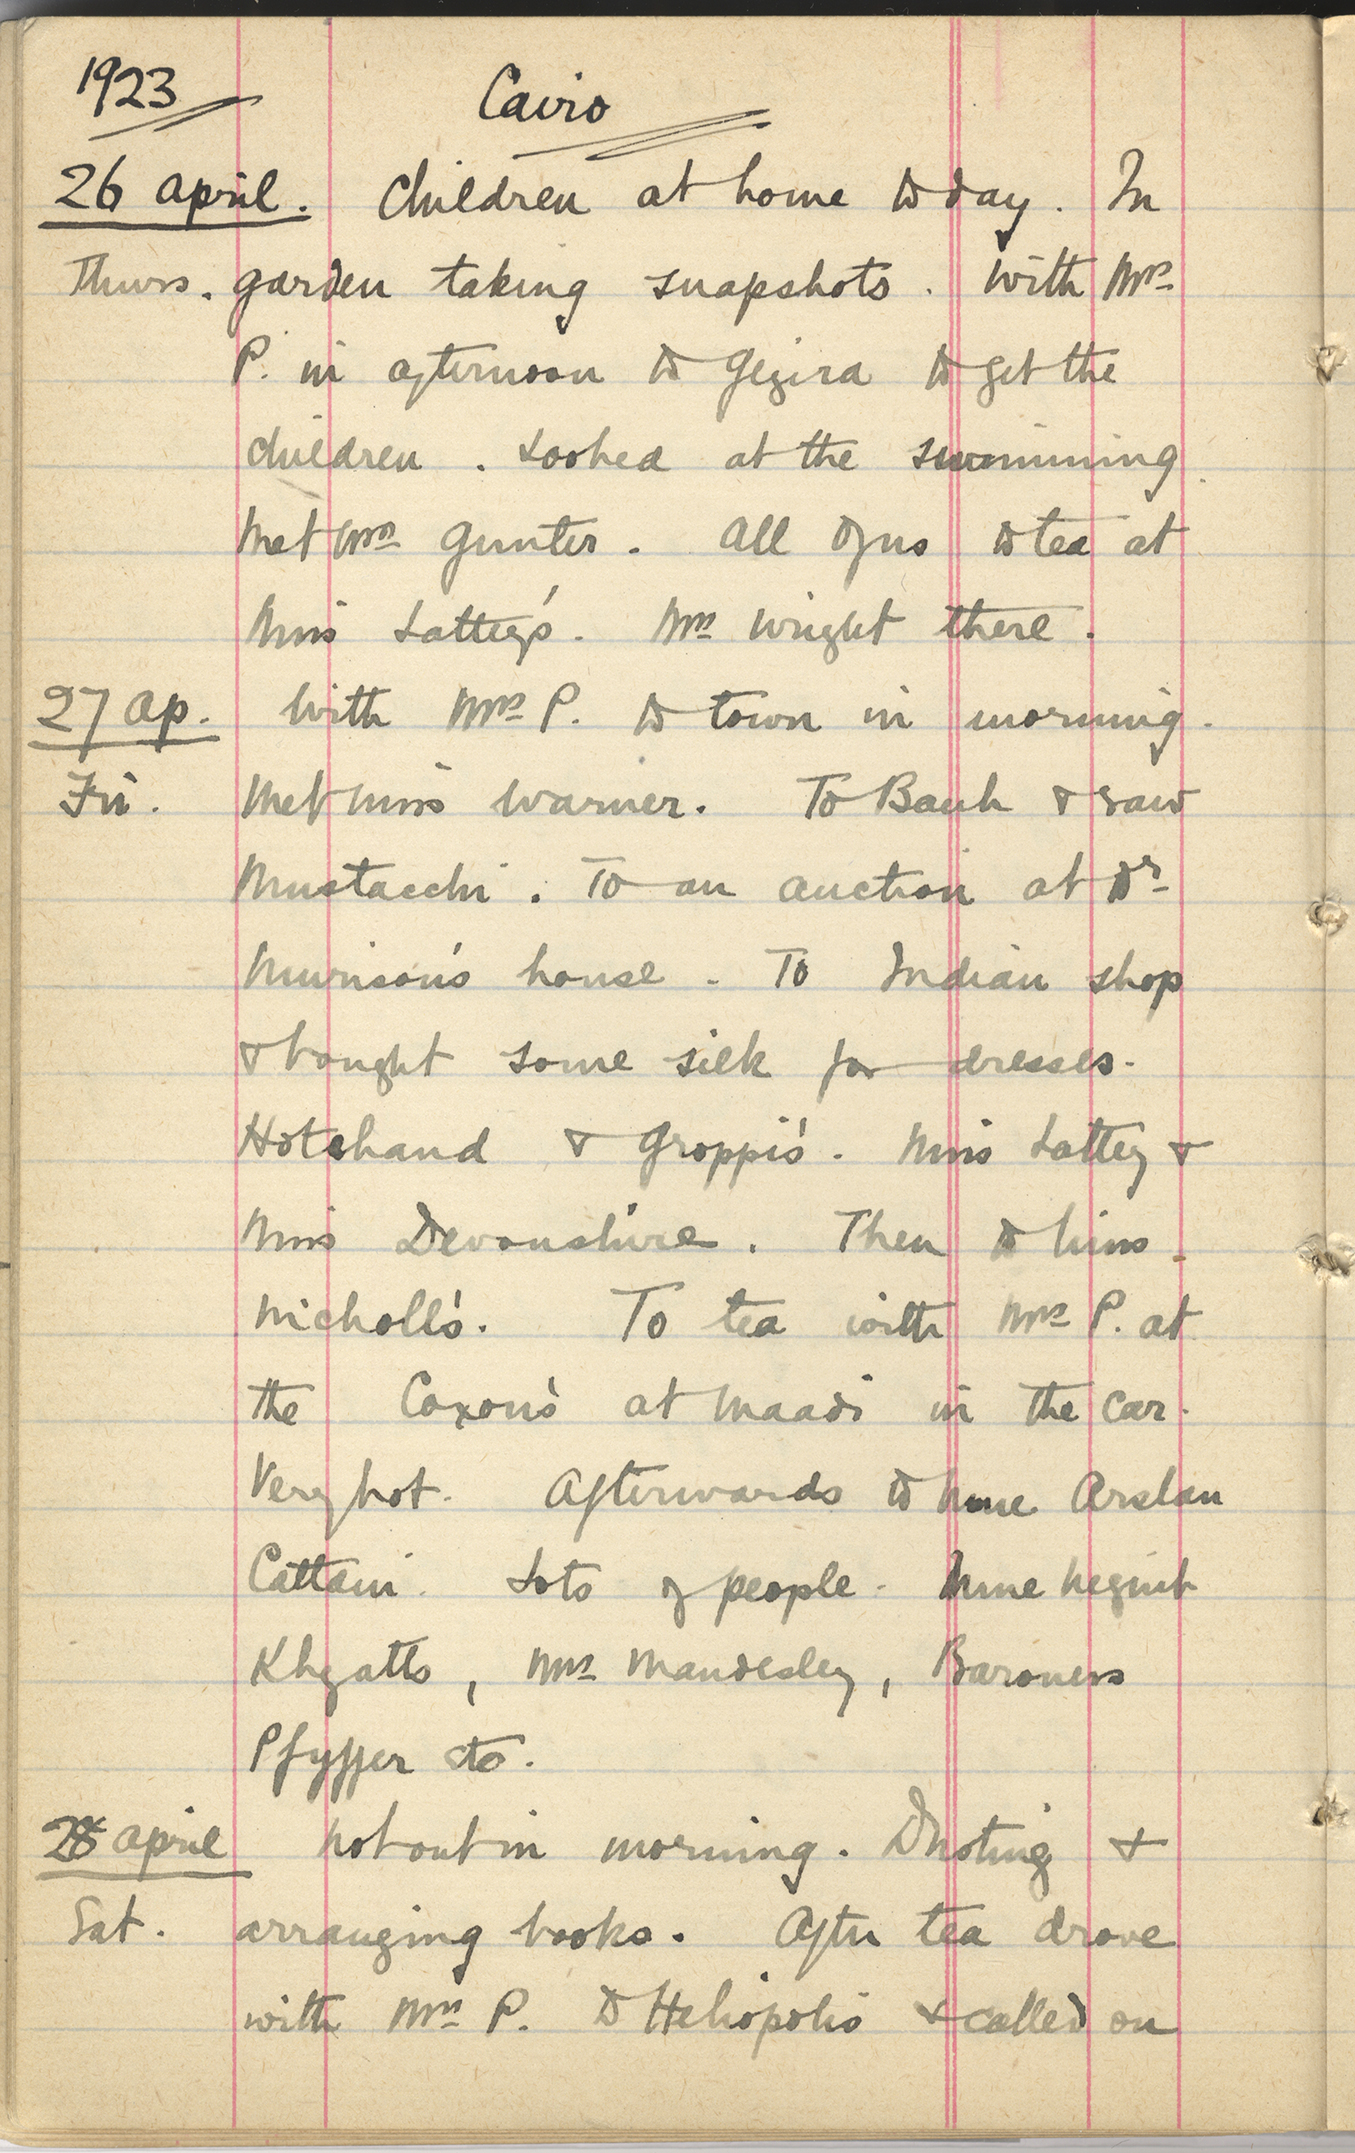 1923 Cairo
26 April. Children at home to day. In
Thurs. garden taking snapshots. With Mrs
P. in afternoon to Gezira to get the
children. Looked at the swimming.
Met Mrs Gunter. All of us to tea at
Miss Lattey's. Mrs Wright there.
27 Ap. With Mrs P. to town in morning.
Fri. Met Miss Warner. To Bank & saw
Mustacchi. To an auction at Dr
Murison's house. To Indian shop
& bought some silk for dresses.
Hotchand & Groppi's. Miss Lattey &
Miss Devonshire. Then to Miss
Nicholls'. To tea with Mrs P. at
the Coxon's at Maadi in the car.
Very hot. Afterwards to Mme Arslan
Cattaui. Lots of people. Mme Neguib
Khyatts, Mrs Mandesley, Baroness
Pfyffer etc.
28 April Not out in morning. Dusting &
Sat. arranging books. After tea drove
with Mrs P. to Heliopolis & called on